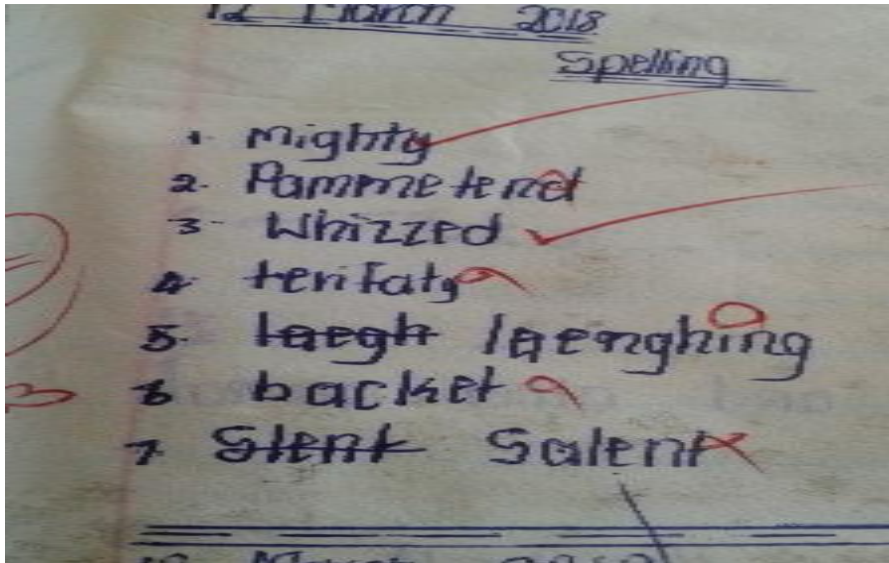 12 March 2018
Spelling
1. Mighty
2. Pammetend
3. Whizzed
4. terifaty
5. laegh laenghing
6 backet
7 Slent Salent
March